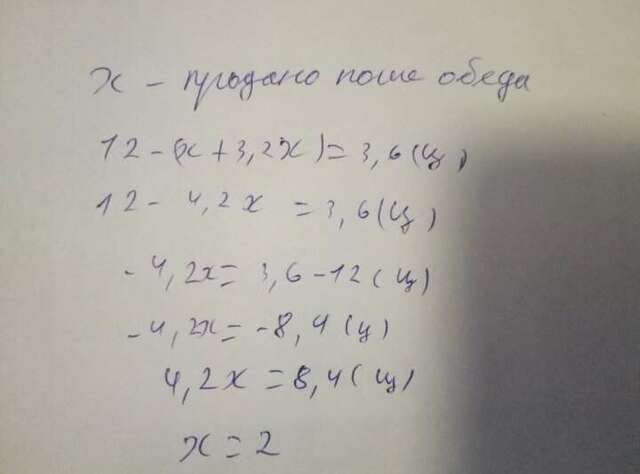 х – продано после обеда
12-(х+3,2х)=3,6(ц)
12-4,2х =3,6(ц)
-4,2х=3,6-12(ц)
-4,2х=-8,4(ц)
4,2х=8,4(ц)
х=2